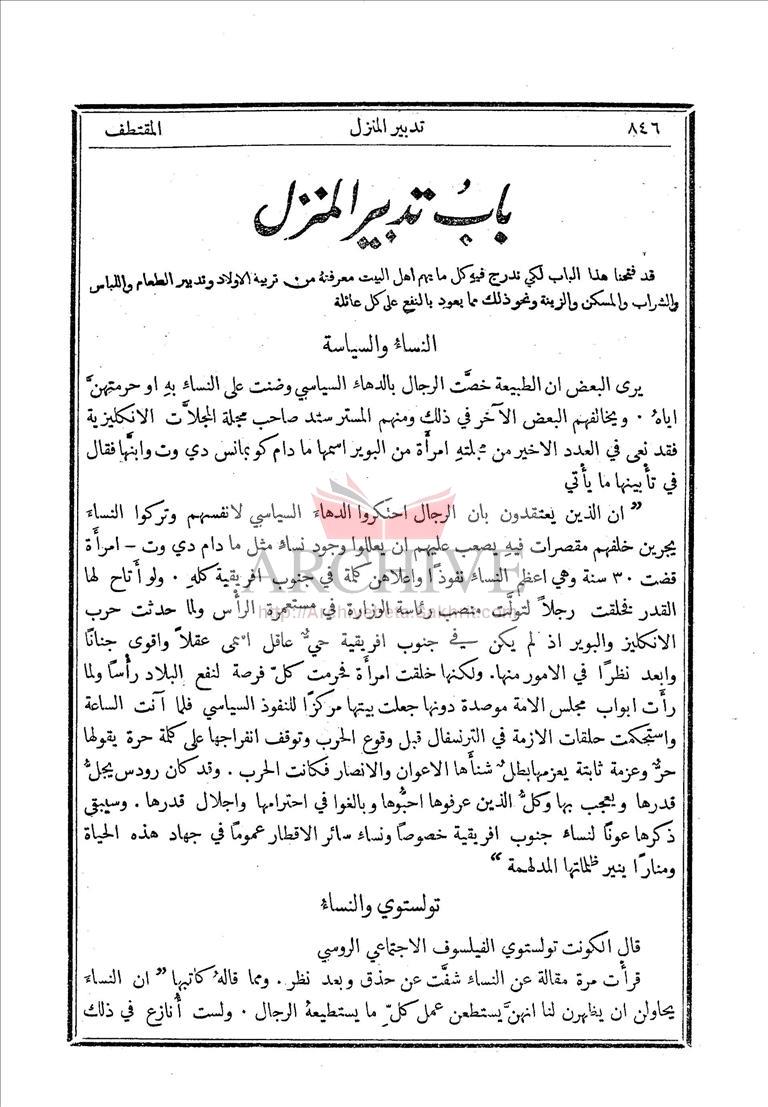 ٨٤٦ تدبير المنزل المقتطف
بابُ تدبير المنزل
قد فتحنا هذا الباب لكي ندرج فيهِ كل ما يهم اهل البيت معرفتهُ من تربية الاولاد وتدبير الطعام واللباس
والشراب والمسكن والزينة ونحو ذلك مما يعود بالنفع على كل عائلة
النساءُ والسياسة
يرى البعض ان الطبيعة خصَّت الرجال بالدهاء السياسي وضنت على النساء بهِ او حرمتهنَّ
اياهُ . ويخالفهم البعض الآخر في ذلك ومنهم المستر ستد صاحب مجلة المجلاَّت الانكليزية
فقد نعى في العدد الاخير من مجلتهِ امرأَة من البوير اسمها مادام كوبمانس دي وت وابنَّها فقال
في تأْبينها ما يأْتي
” ان الذين يعتقدون بان الرجال احتكروا الدهاء السياسي لانفسهم وتركوا النساء
يجرين خلفهم مقصرات فيهِ يصعب عليهم ان يعللوا وجود نساءٍ مثل مادام دي وت – امرأَة
قضت ٣٠ سنة وهي اعظم النساء نفوذًا واعلاهن كلمة في جنوب افريقية كلهِ . ولو أتاح لها
القدر فخلقت رجلاً لتولَّت منصب رئاسة الوزارة في مستعمرة الرأْس ولما حدثت حرب
الانكليز والبوير اذ لم يكن في جنوب افريقية حيٌّ عاقل اسمى عقلاً واقوى جنانًا
وابعد نظرًا في الامور منها. ولكنها خلقت امرأَة فحرمت كلّ فرصة لنفع البلاد رأْسًا ولما
رأَت ابواب مجلس الامة موصدة دونها جعلت بيتها مركزًا للنفوذ السياسي فلما آنت الساعة
واستحكمت حلقات الازمة في الترنسفال قبل وقوع الحرب وتوقف انفراجها على كلمة حرة يقولها
حرٌّ وعزمة ثابتة يعزمها بطلٌ شنأَها الاعوان والانصار فكانت الحرب . وقد كان رودس يجلُّ
قدرها ويعجب بها وكلُّ الذين عرفوها احبُّوها وبالغوا في احترامها واجلال قدرها . وسيبقى
ذكرها عونًا لنساء جنوب افريقية خصوصًا ونساء سائر الاقطار عمومًا في جهاد هذه الحياة
ومنارًا ينير ظلماتها المدلهمة “
تولستوي والنساءُ
قال الكونت تولستوي الفيلسوف الاجتماعي الروسي
قرأْت مرة مقالة عن النساء شفَّت عن حذق وبعد نظر . ومما قالهُ كاتبها ” ان النساء
يحاولن ان يظهرن لنا انهنَّ يستطعن عمل كلّ ما يستطيعهُ الرجال . ولست أُنازع في ذلك
ARCHIVE